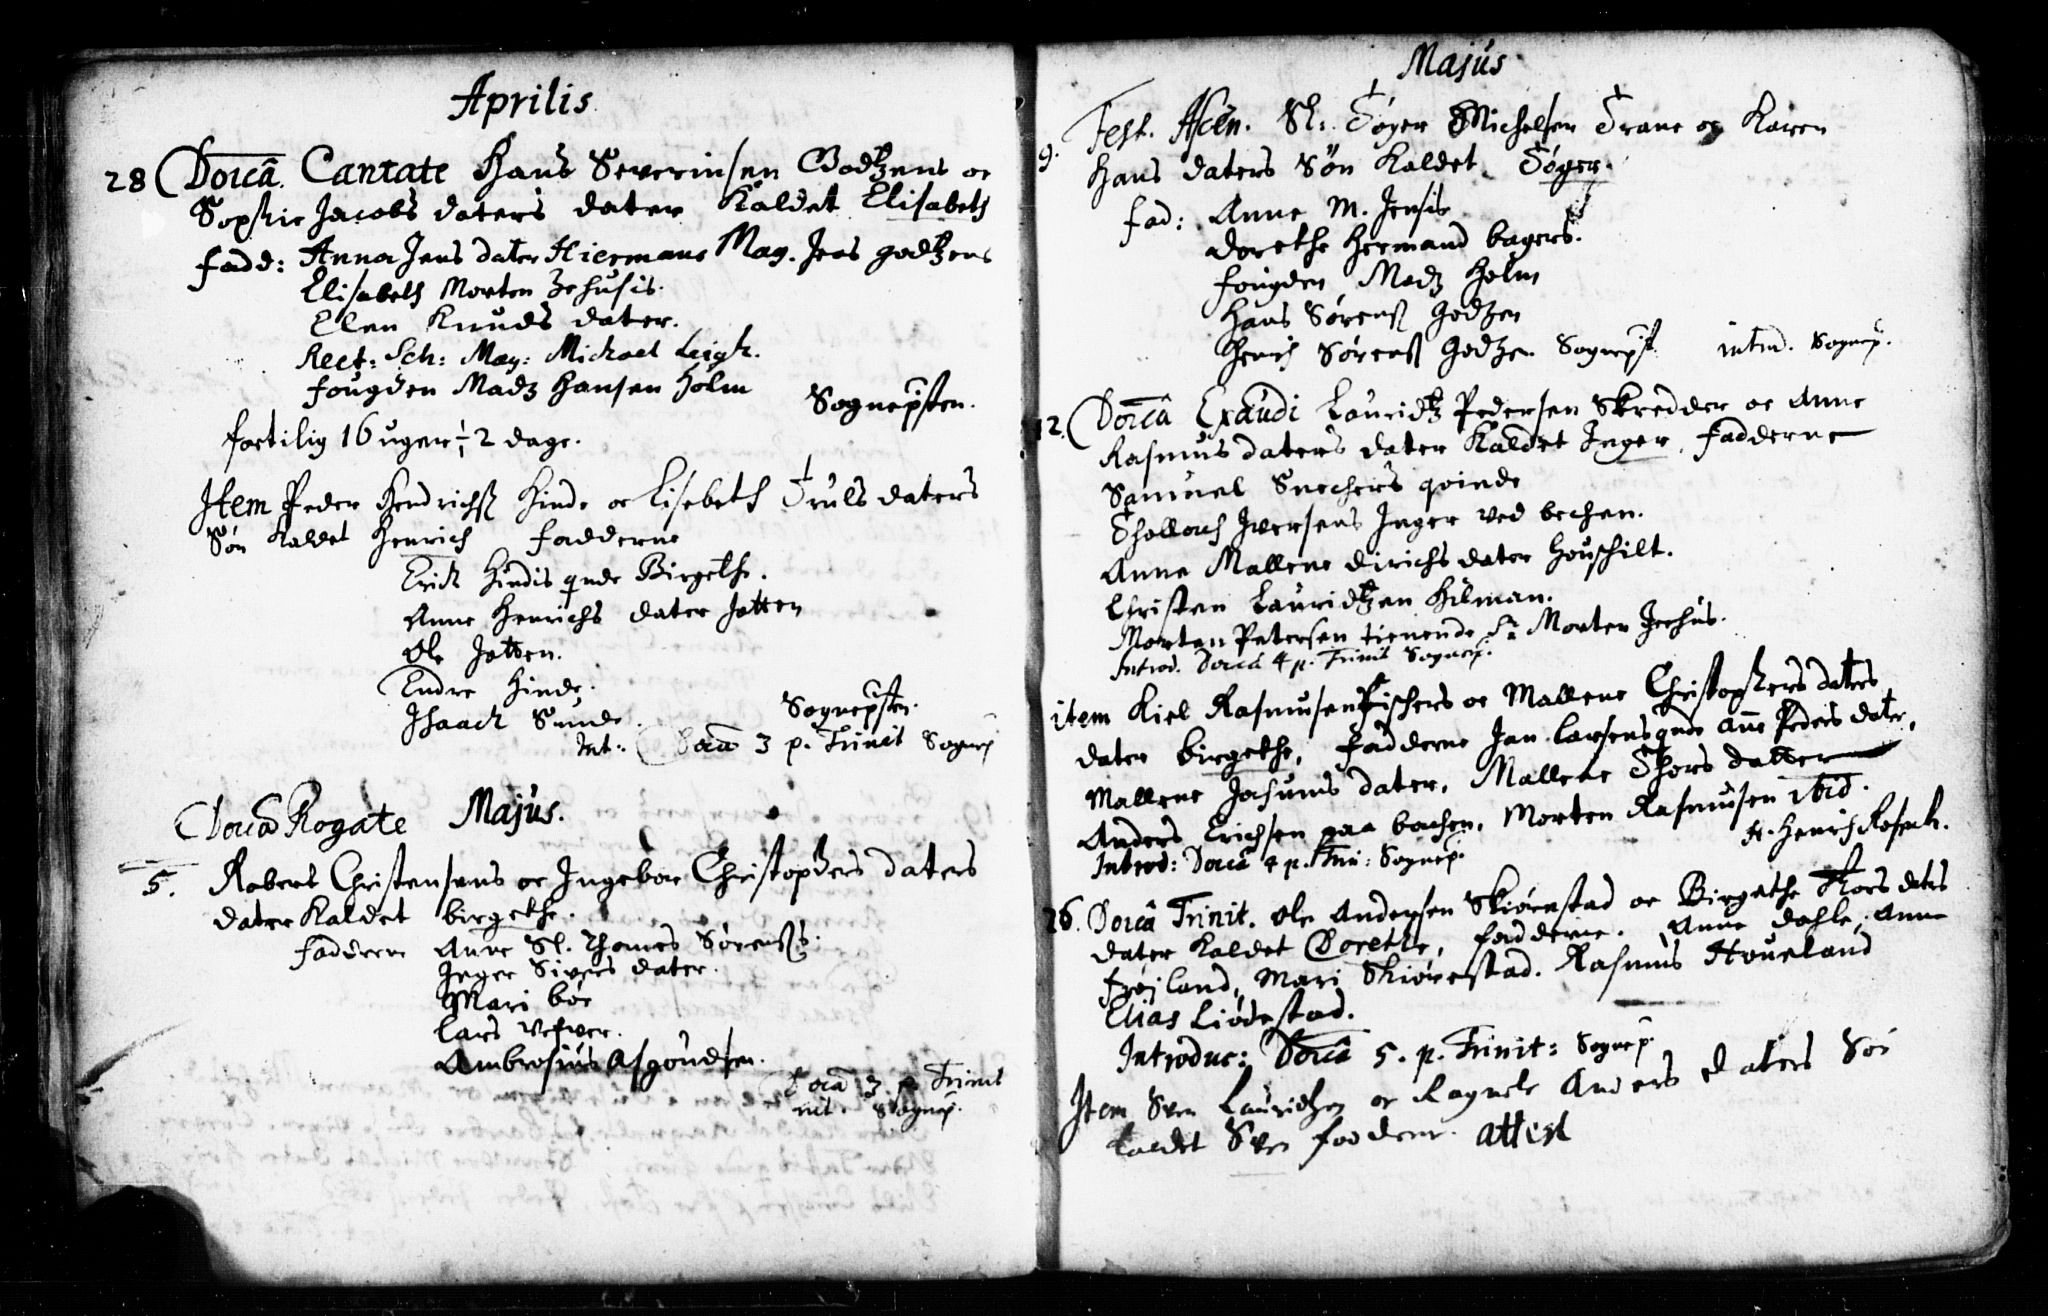 Aprilis
28 Doicâ. Cantate Hans Severinsen Godtzens oc
Sophie Jacobs daters dater Kaldet Elisabeth
fadd: Anna Jens dater Hiermans Mag. Jens godtzens
Elisabeth Morten Jehusis.
Elen Knuds dater.
Rect: Sch: Mag: Michael Leigh.
fougden Madz Hansen Holm
Sognepsten.
foetilig 16 uger ÷ 2 dage.
Item Peder Hendrichss Hinde oc Lisebeth Truls daters
Søn Kaldet Henrich fadderne
Erich Hindis qvde Birgethe.
Anne Henrichs dater Jatten
Ole Jatten.
Endre Hinde.
Isaach Sunde.
Sognepsten.
Int: Doicâ 3 p. Trinit Sognep
Majus.
Doicâ Rogate
5. Robert Christensens oc Ingebor Christophers daters
dater Kaldet birgethe.
fadderne Anne Sl. Thomes Sørenss.
Inger Sivers dater.
Mari böe
Lars Vefver.
Ambrosius Asgoudsen.
Doicâ 3 p. Trinit
int. Sognep.
Majus
9. Fest. Ascen. Sl: Tøger Michelsen Trane og Karen
Hans daters Søn Kaldet Tøger.
fad: Anne M. Jensis
Dorethe Hermand bagers.
fougden Madz Holm
Hans Sørenss Godtzen
Henrich Sørenss Godtzen Sognepst. intrd. Sognep.
12. Doicâ Exaudi Lauridtz Pedersen Skredder oc Anne
Rasmus daters dater Kaldet Inger, fadderne
Samuel Snechers qvinde
Thollach Iversens Inger ved bechen.
Anne Mallene Dirichs dater Houschilt.
Christen Lauridtzen Hilman.
Morten Petersen tienende Sr Morten Jeehus.
Introd. Doicâ 4 p. Trinit Sognep.
item Kiel Rasmusen Fischers oc Mallene Christophers daters
dater birgethe, fadderne Jan Larsens qvde Anne Peders dater,
Mallene Jochums dater, Mallene Thors datter
Anders Erichsen paa bachen, Morten Rasmusen ibid.
H. Henrich
Introd: Doicâ 4 p. Trin: Sognep.
26. Doicâ Trinit. Ole Andersen Skiörestad oc Birgethe Thors daters
dater Kaldet Dorethe, fadderne. Anne dahle, Anne
Frøjland, Mari Skiörestad. Rasmus Houeland
Elias Liödestad.
Introduc: Doicâ 5. p. Trinit: Sognep.
Item Sven Lauridtzen oc Ragnele Anders daters Søn
Kaldet Sven fadderne. attest